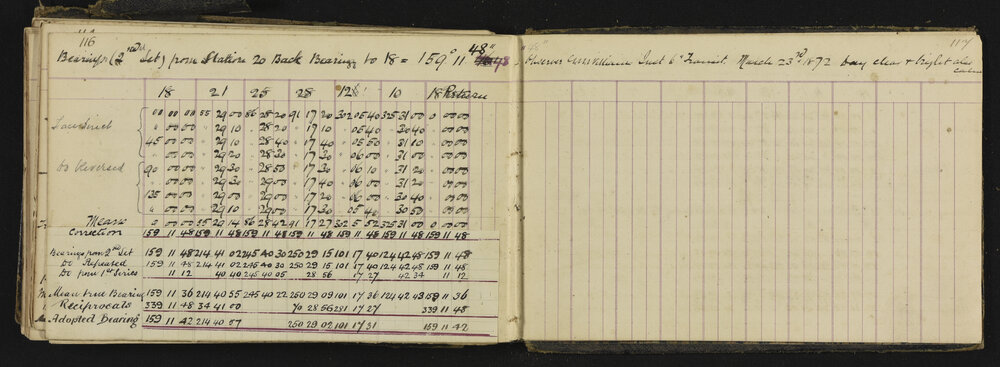 116
Bearings (2nd Set) from Station 20 Back Bearing to 18 = 159° 11 48"
18 21 25 28 12 10 18 Return
00 00 00 55 29 00 86 28 20 91 17 20 302 05 40 325 31 00 0 00 00
" 00 00 " 29 10 " 28 20 " 17 10 " 05 40 " 30 40 " 00 00
45 00 00 " 29 10 " 28 40 " 17 40 " 05 50 " 31 10 " 00 00
" 00 00 " 29 20 " 28 30 " 17 30 " 06 00 " 31 00 " 00 00
Do Reversed
90 00 00 " 29 30 " 28 50 " 17 30 " 06 10 " 31 20 " 00 00
" 00 00 " 29 30 " 29 00 " 17 40 " 06 00 " 31 20 " 00 00
135 00 00 " 29 00 " 29 00 " 17 20 " 06 00 " 30 40 " 00 00
" 00 00 " 29 10 " 29 00 " 17 30 " 05 40 " 30 50 " 00 00
Means 0 00 00 55 29 14 86 28 42 91 17 27 302 5 52 325 31 00 0 00 00
Correction 159 11 48 159 11 48 159 11 48 159 11 48 159 11 48 159 11 48 159 11 48
Bearings from 2nd Set 159 11 48 214 41 02 245 40 30 250 29 15 101 17 40 124 42 48 159 11 48
Do Repeated 159 11 48 214 41 02 245 40 30 250 29 15 101 17 40 124 42 48 159 11 48
Do from 1st Series 11 12 40 40 245 40 05 28 56 17 27 42 34 11 12
Mean True Bearing 159 11 36 214 40 55 245 40 22 250 29 09 101 17 36 124 42 43 159 11 36
Reciprocals 339 11 48 34 41 00 70 28 56 281 17 27 339 11 48
Adopted Bearing 159 11 42 214 40 57 250 29 02 101 17 31 159 11 42
117
Observer Inst 6" Transit March 23rd 1872 day clear & bright also calm